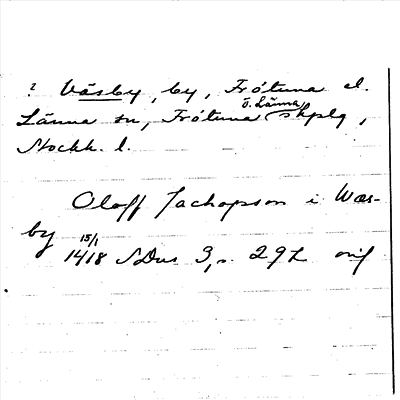 ? Väsby, by, Frötuna el.
Ö. Länna
Länna sn, Frötuna skplg,
Stockh. l.
Oloff Jachopson i Wæs-
by
15/1
1418 SDns 3, s. 292 orig